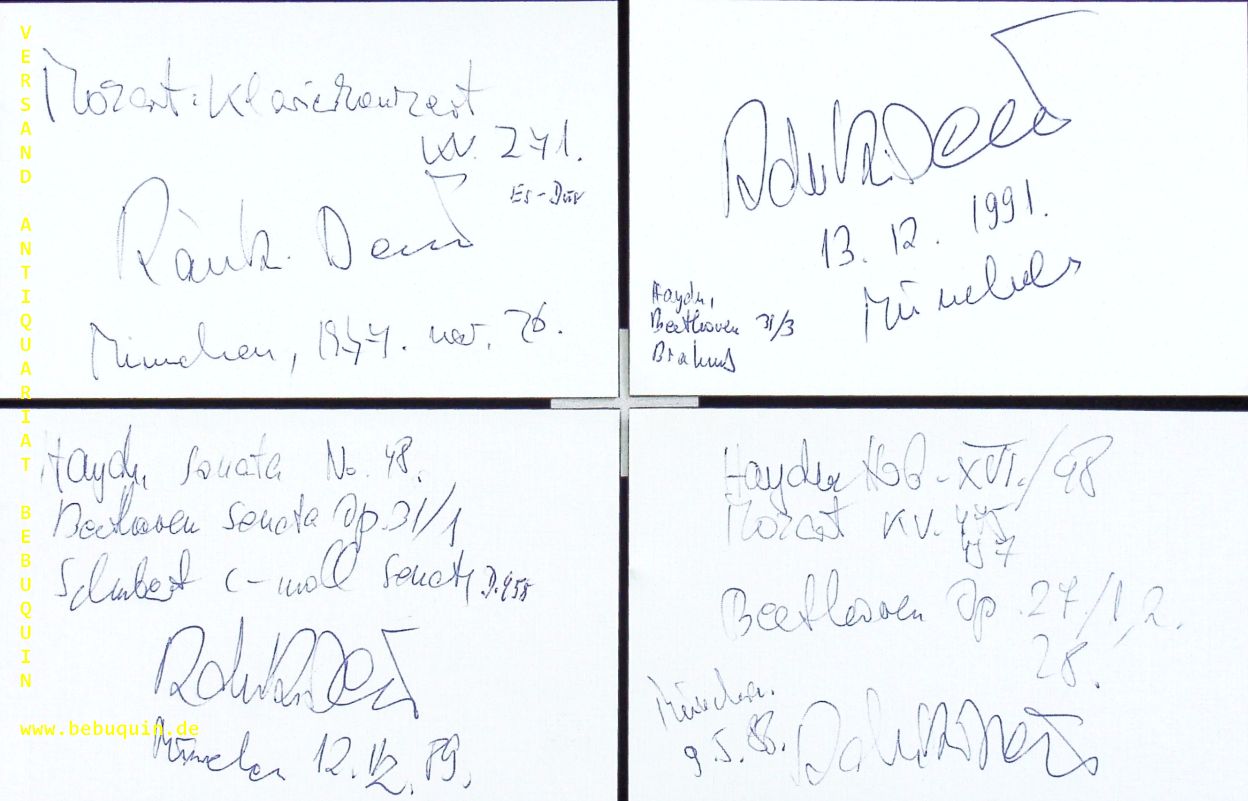 VERSAND ANTIQUARIAT BEBUQUIN
Mozart: Klavierkonzert
KV. 271.
Es-Dur
Ránki Dezső
München, 1977. nov. 26.
Ránki Dezső
13. 12. 1991.
München
Haydn,
Beethoven 31/3
Brahms
Haydn Sonata No. 48.
Beethoven Sonata Op. 31/1
Schubert c-moll Sonate D.958
Ránki Dezső
München 12. 89.
Haydn Hob-XVI./48
Mozart KV. 475
457
Beethoven Op. 27/1,2.
28.
München.
9.5.88.
Ránki Dezső
www.bebuquin.de